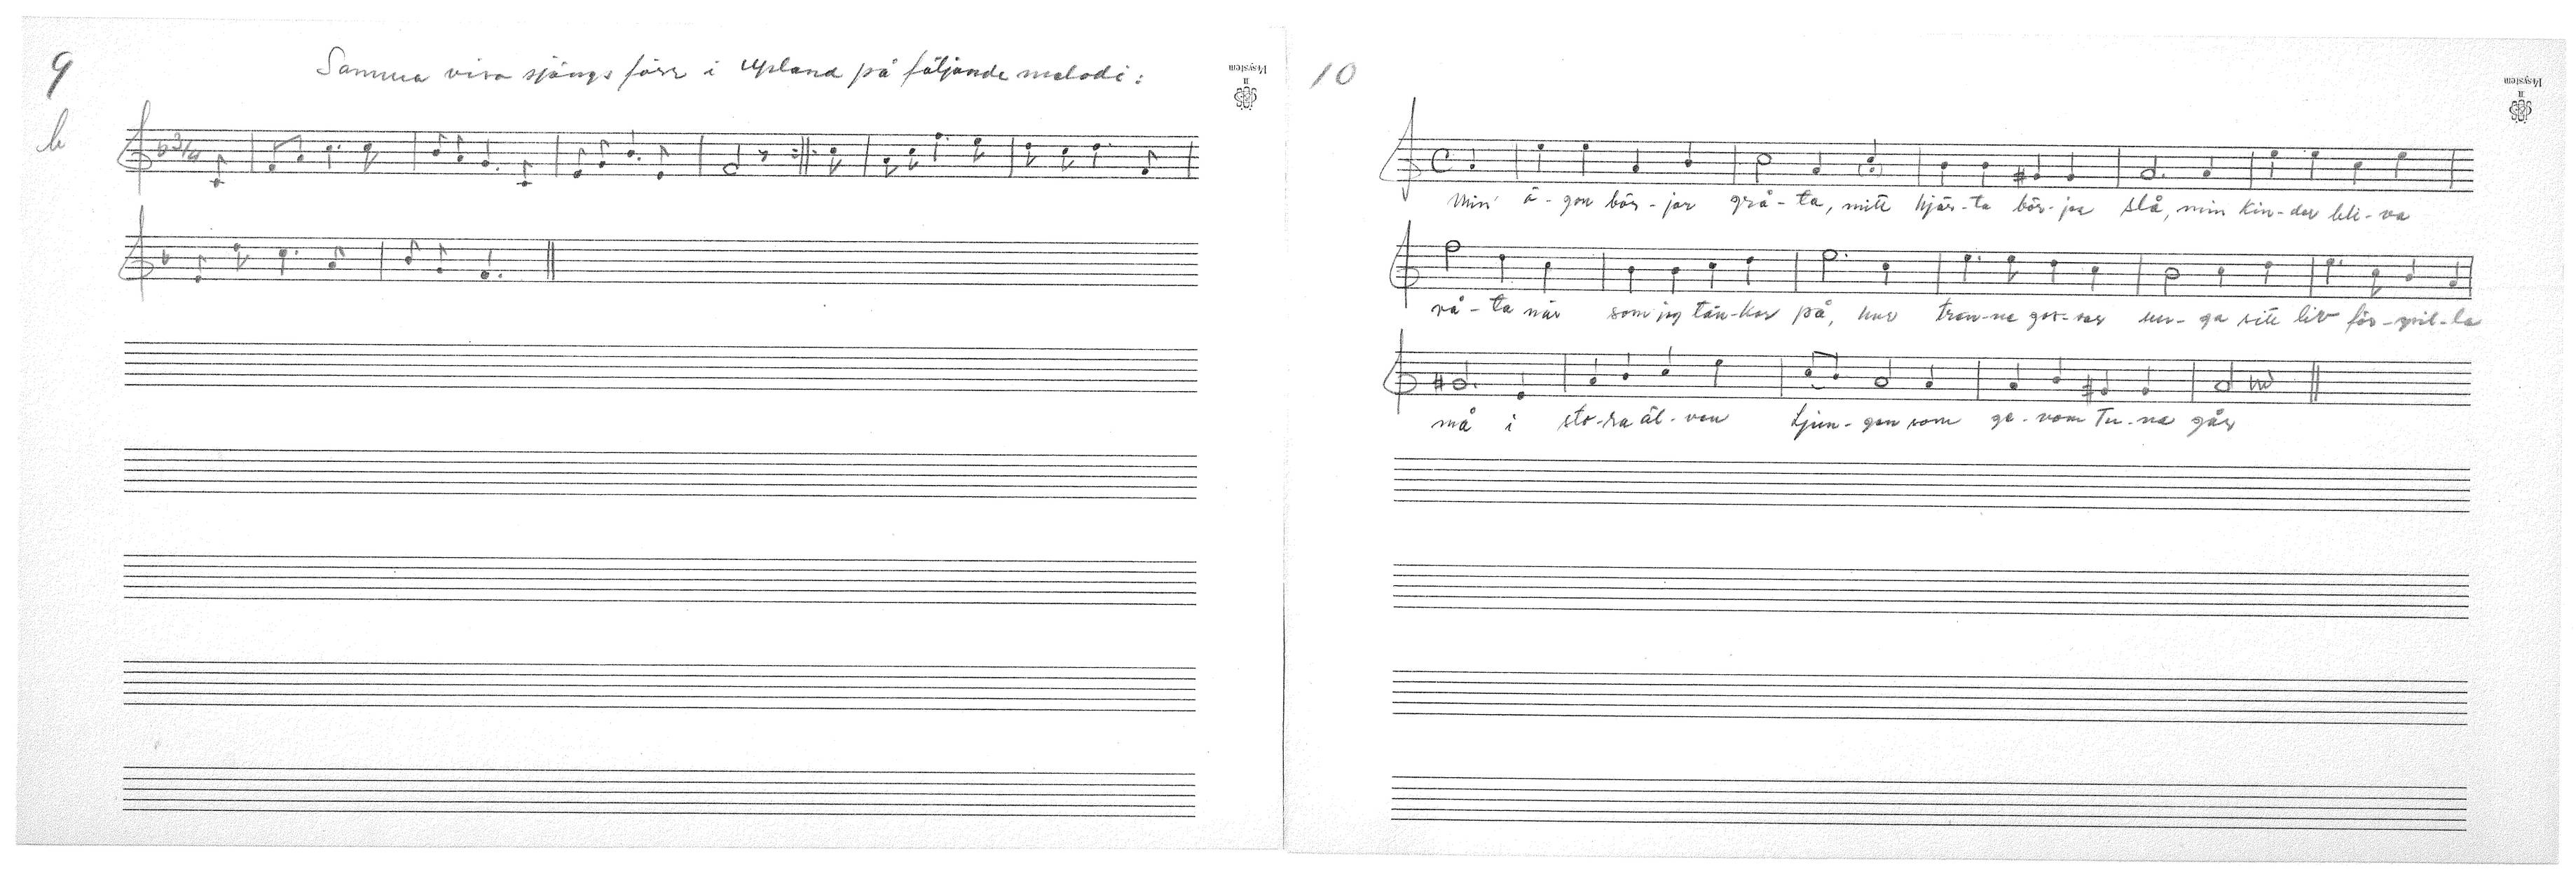 9
Samma visa sjöngs förr i Upland på följande melodi:
b
3/4
10
Min' ö-gon bör-jar grå-ta, mitt hjär-ta bör-jar slå, min kin-der bli-va
vå-ta när som jag tän-ker på, hur tren-ne gos-sar un-ga sitt liv för-spil-la
må i sto-ra äl-ven Ljun-gan som ge-nom Tu-na går
14system
II
14system
II